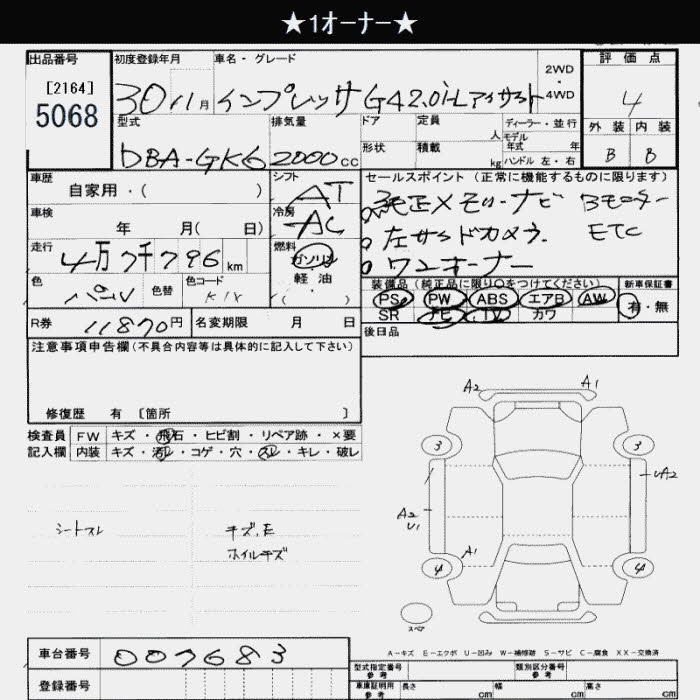 ★1オーナー★
出品番号 初度登録年月 車名・グレード 2WD・4WD 評価点
[2164]
5068
30 11月 インプレッサ G4 2.0i-L アイサイト 4
型式 排気量 ドア 定員 人 ディーラー・並行 外装 内装
モデル年式 年
DBA-GK6 2000cc 形状 積載 kg ハンドル 左・右 B B
車歴 シフト セールスポイント(正常に機能するものに限ります)
自家用・( ) AT 純正メモリーナビ Bモニター
車検 冷房 左サイドカメラ. ETC
年 月( 日) AC ワンオーナー
走行 燃料
4万7千796km ガソリン
軽油
( )
色 色替 色コード 装備品(純正品に限り○をつけてください) 新車保証書
パール K1X PS PW ABS エアB AW 有・無
SR ナビ TV カワ
R券 11870円 名変期限 月 日 後日品
注意事項申告欄(不具合内容等は具体的に記入して下さい)
修復歴 有 〔箇所 〕
検査員 FW キズ・飛石・ヒビ割・リペア跡・×要
記入欄 内装 キズ・汚レ・コゲ・穴・スレ・キレ・破レ
A2 A1
3 3
UA2
A2
U1
A1
4 4
スペア
シートスレ キズ.E
ホイルキズ
A-キズ E-エクボ U-凹み W-補修跡 S-サビ C-腐食 XX-交換済
車台番号 007683
型式指定番号 参考 類別区分番号 参考
登録番号 車庫証明用 参考 長さ cm 幅 cm 高さ cm